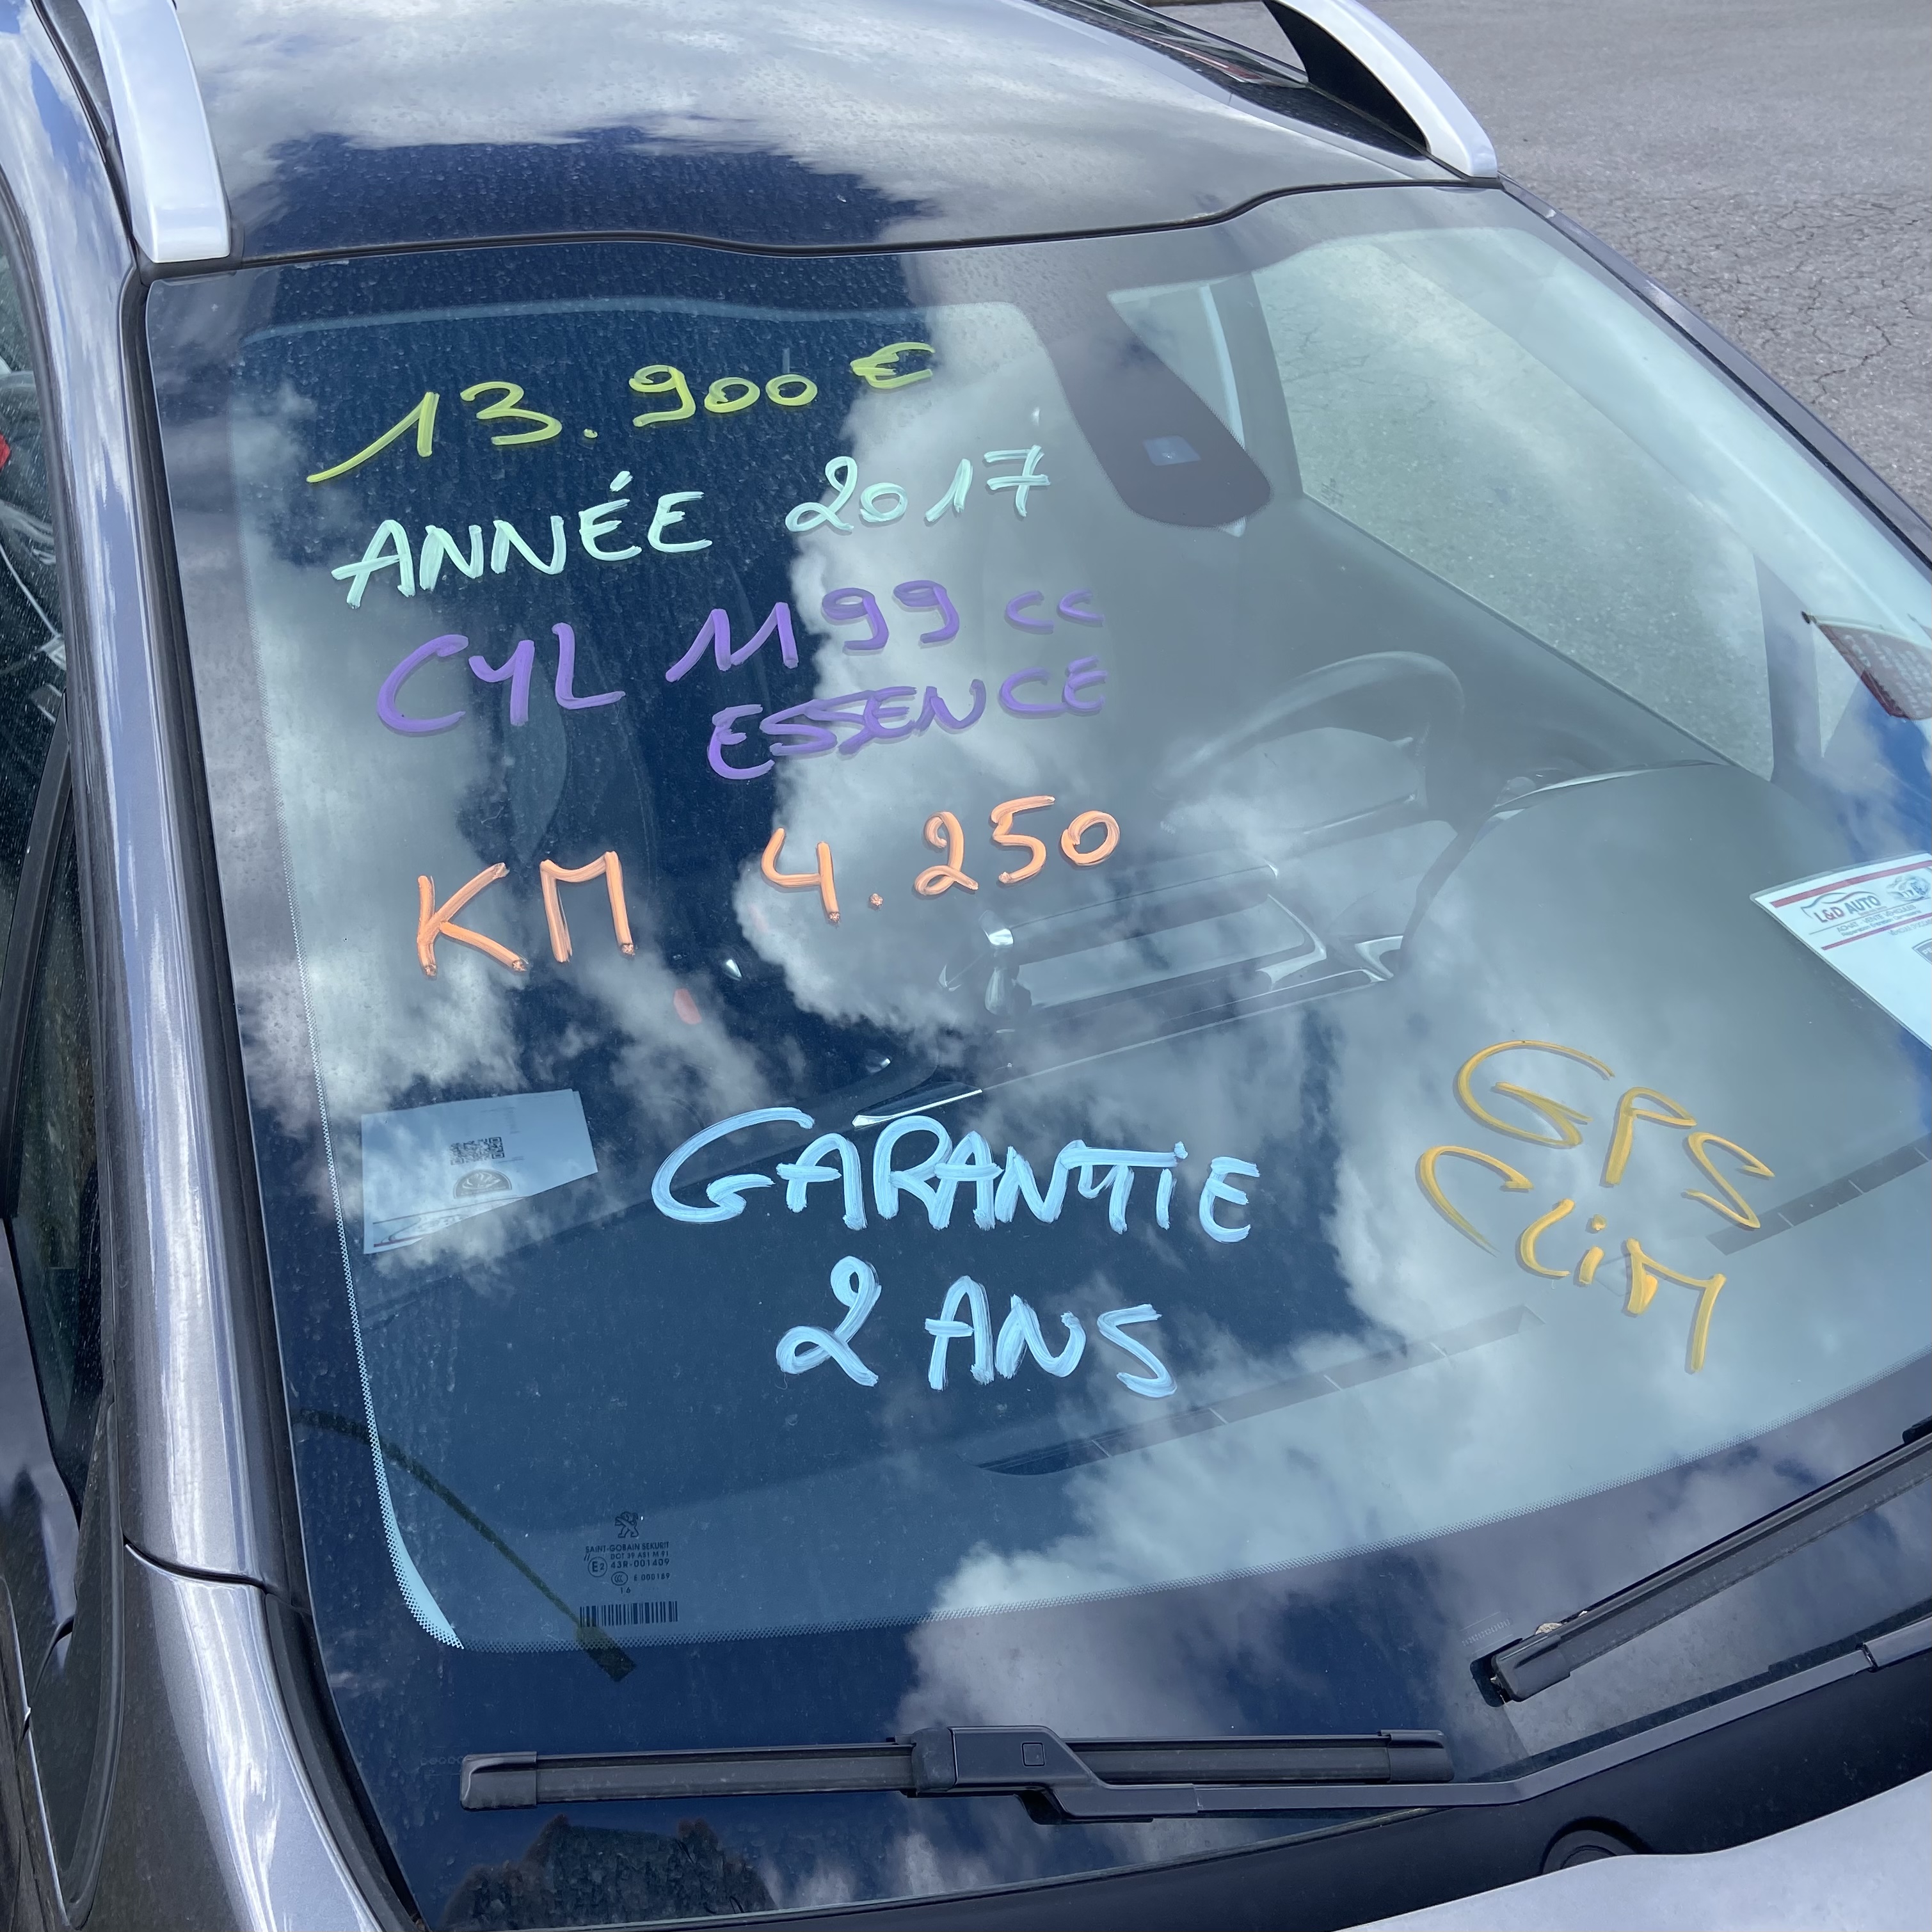 13.900 €
ANNÉE 2017
CYL 1199 cc
ESSENCE
KM 4.250
L&D AUTO
GARANTIE
2 ANS
GPS
CLiM
SAINT-GOBAIN SEKURIT
DOT 39 AS1 M 91
E2 43R-001409
CCC E 000189
16